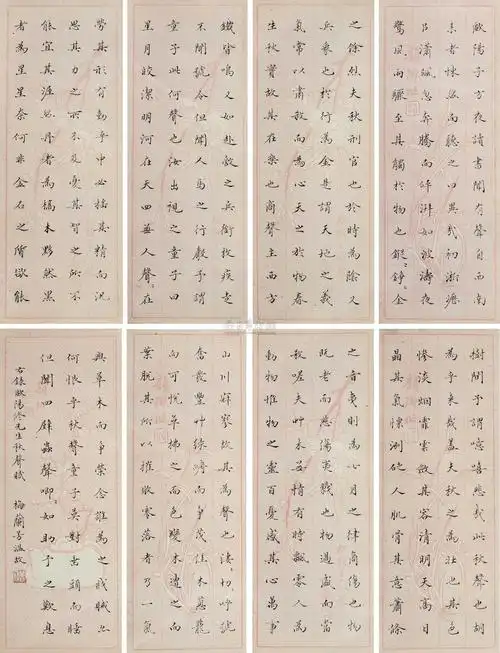 歐陽子方夜讀書聞有聲自西南
来者悚然而聽之曰異哉初淅瀝
以瀟颯忽奔騰而砰湃如波濤夜
驚風雨驟至其觸於物也鏦〻錚〻金
鐵皆鳴又如赴敵之兵銜枚疾走
不聞號令但聞人馬之行聲予謂
童子此何聲也汝出視之童子曰
星月皎潔明河在天四無人聲〻在
樹間予曰噫嘻悲哉此秋聲也胡
為乎来哉蓋夫秋之為壯也其色
慘淡烟霏雲斂其容清明天高日
晶其氣慄洌砭人肌骨其意蕭條
山川寂寥故其為聲也淒〻切〻呼號
奮發豐艸綠縟而爭茂佳木葱蘢
而可悅草拂之而色變木遭之而
葉脫其所以摧敗零落者乃一氣
之餘烈夫秋刑官也於時為陰又
兵象也於行為金是謂天地之義
氣常以肅殺而為心天之於物春
生秋實故其在樂也商聲主西方
之音夷則為七月之律商傷也物
既老而悲傷夷戮也物過盛而當
殺嗟夫艸木無情有時飄零人為
動物惟物之靈百憂感其心萬事
勞其形有動乎中必搖其精而況
思其力之所不及憂其智之所不
能宜其渥然丹者為槁木黟然黑
者為星星奈何非金石之質欲
與草木而爭榮念誰為之戕賊亦
何恨乎秋聲童子莫對垂頭而睡
但聞四壁蟲聲唧〻如助予之歎息
右錄歐陽修先生秋聲賦 梅蘭芳溫故